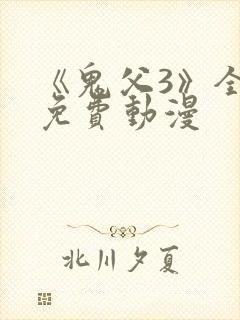 《鬼父3》全
免費動漫
北川夕夏